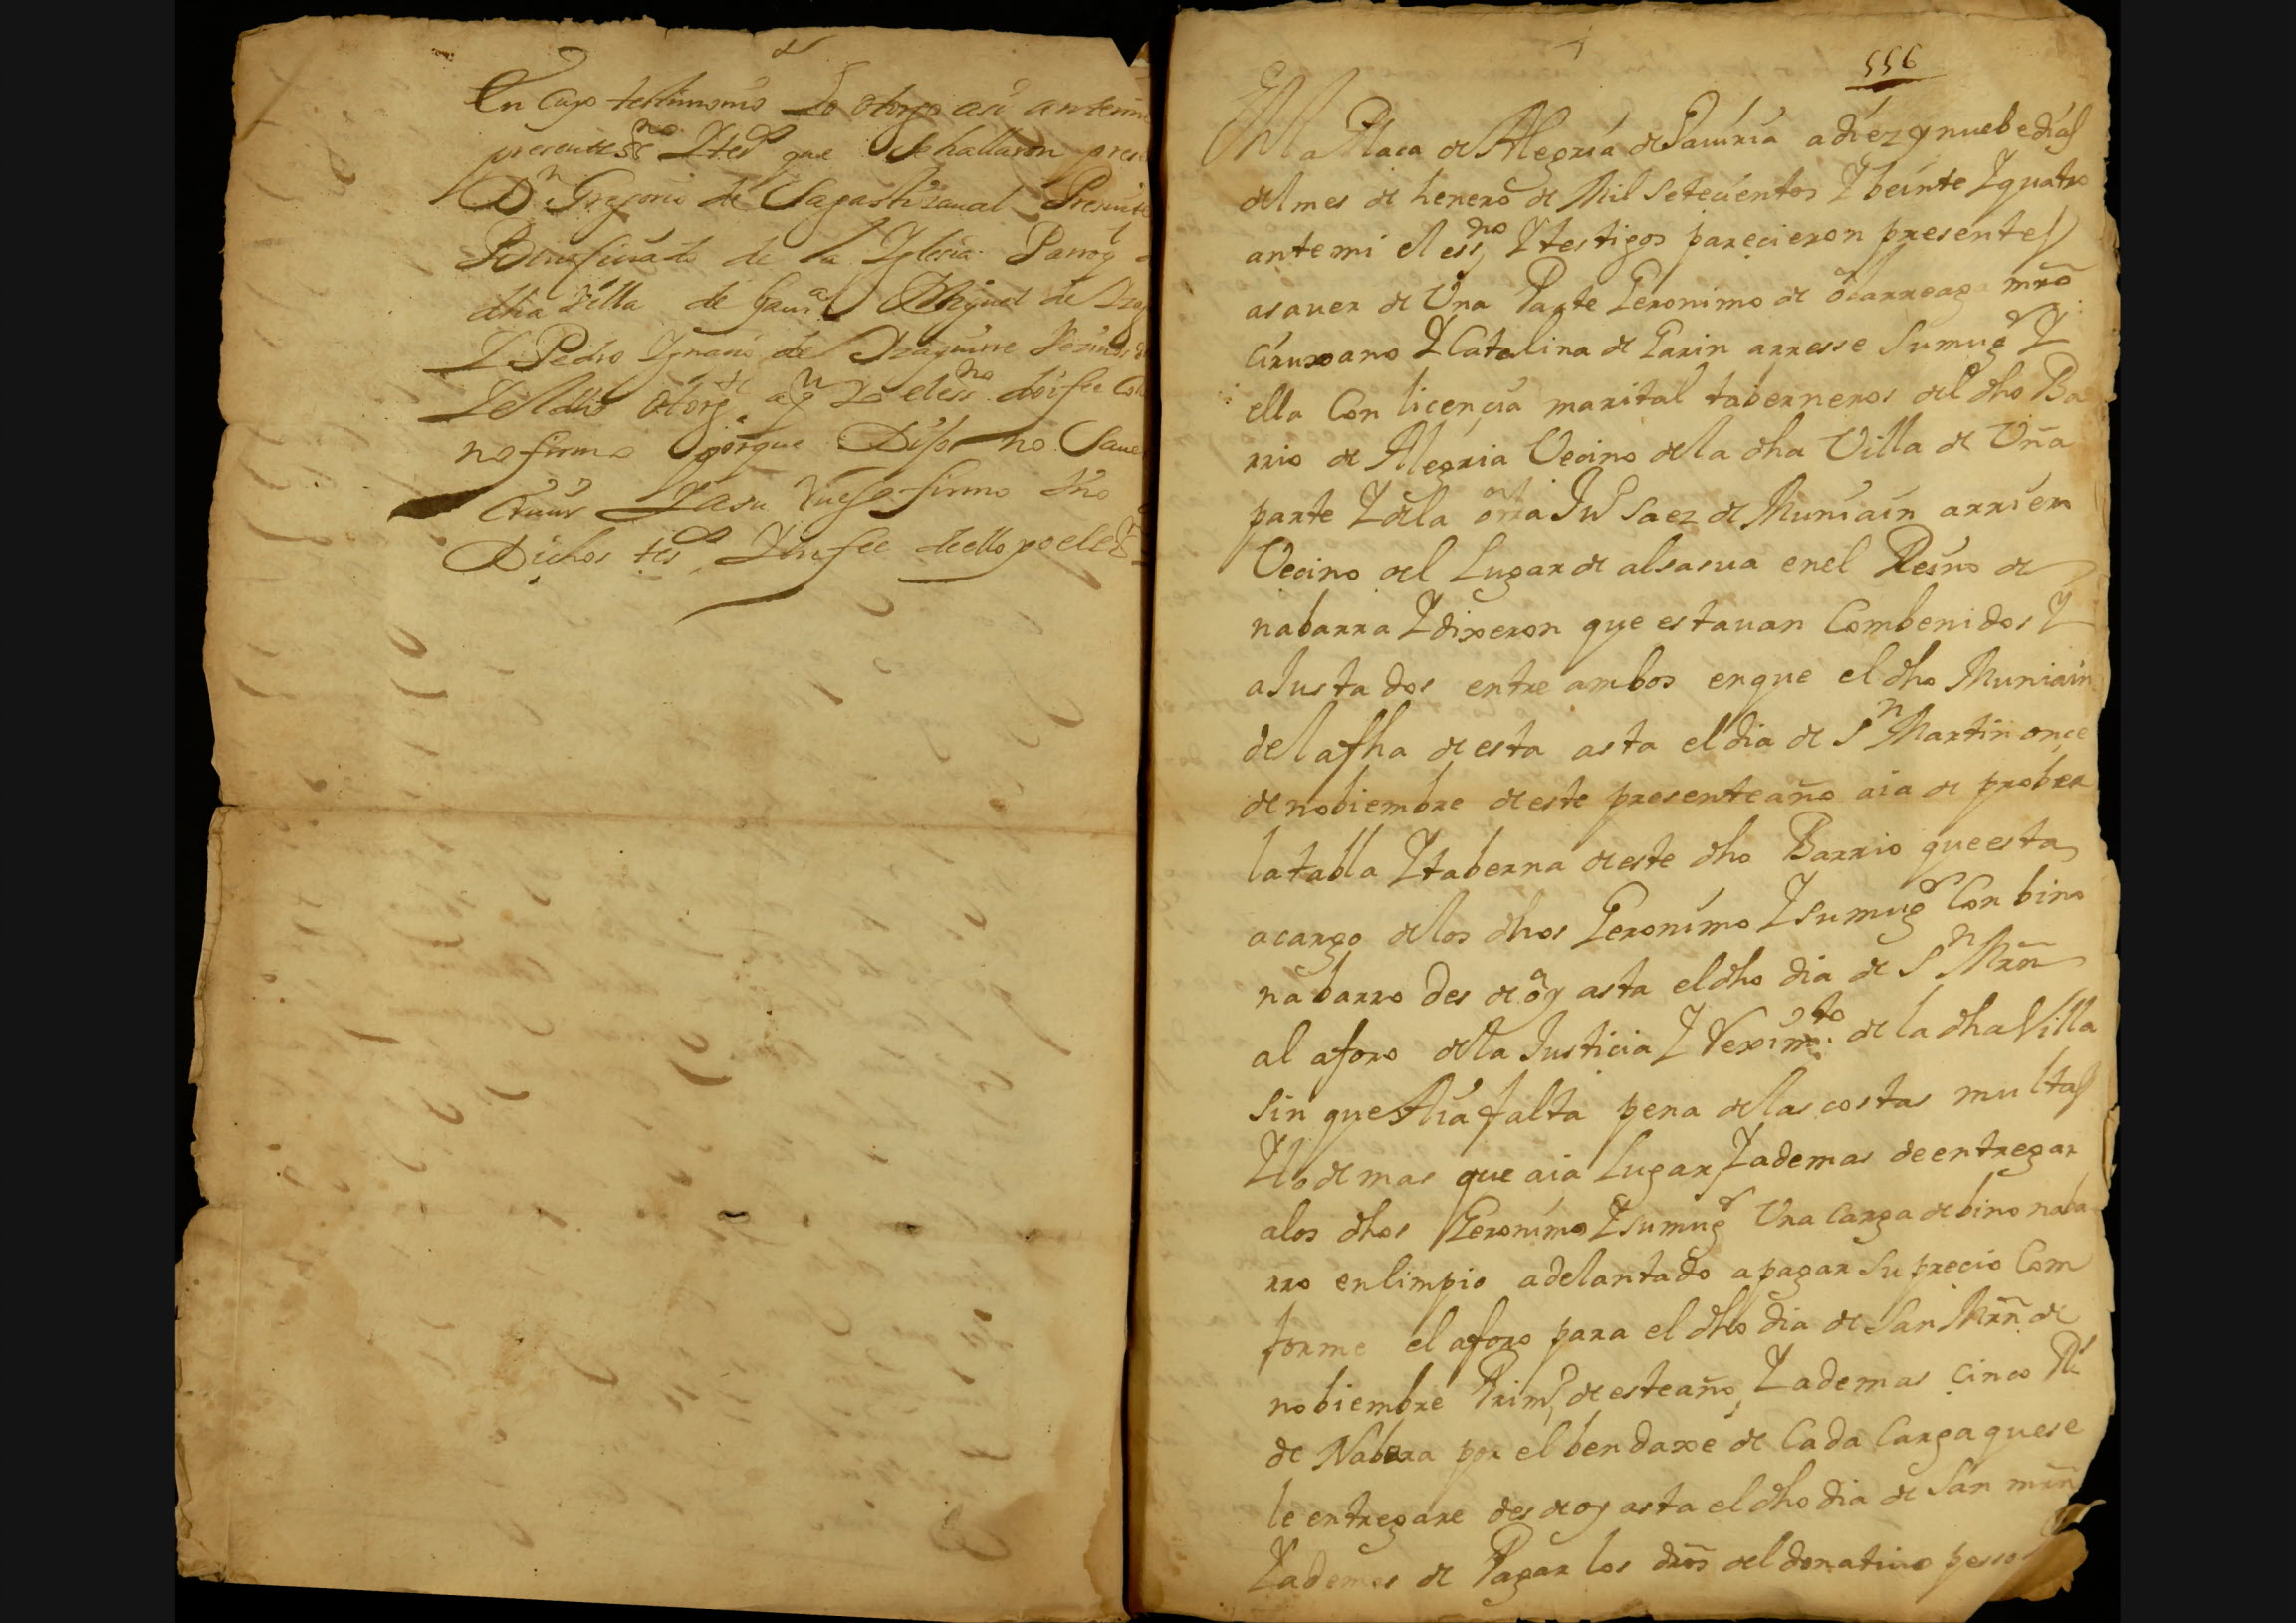 En cuyo testimonio Lo otorgo asi antemi
presente ssno Y tes que se hallaron pres
Dn Gregorio de Sagastizaual Presuite
Beneficiado de la Yglesia Parroq
dha villa de Gauª Miguel de
Y Pedro Ygnacio de Yzaguirre vecinos
Y el dho otorgte aqn Yo el essno doi fee Co
no firmo porque Dijo no Saue
Criuir Y a su ruego firmo Vno
Dichos tes Y en fee de ello yo el es
556
En la Placa de Alegria de Gauiria a diez y nuebe dias
del mes de henero de Mil setecientos Y beinte Y quatro
ante mi el essno Y testigos parecieron presentes
asauer de Vna Parte Geronimo de ocarreaga mro
ciruxano Y Catalina de Garin arresse su mugr Y
ella Con licencia marital taberneros del dho Ba
rrio de Alegria Vecino de la dha Villa de Vña
parte Y de la otra Ju Saez de Muniain arriero
Vecino del Lugar de alsasua en el Reino de
nabarra Y dixeron que estauan Combenidos Y
aJustados entre ambos en que el dho Muniain
de la fha de esta asta el dia de Sn Martin once
de nobiembre de este presente año aia de probeer
la tabla Y taberna de este dho Barrio que esta
a cargo de los dhos Geronimo Y su mugr Con bino
nabarro des de oy asta el dho dia de Sn Mrn
al aforo de la Justicia Y Reximto de la dha Villa
sin que Aia falta pena de las costas multas
Y lo de mas que aia Lugar, Y ademas de entregar
a los dhos Geronimo Y su mugr Vna carga de bino naba
rro en limpio adelantado a pagar su precio Com
forme el aforo para el dho dia de San Mrn de
nobiembre Primo de este año, Y ademas cinco Rs
de Nabara por el bendaxe de Cada Carga que se
le entregare des de oy asta el dho dia de San mrn
Y ademas de Pagar los dros del donatiuo